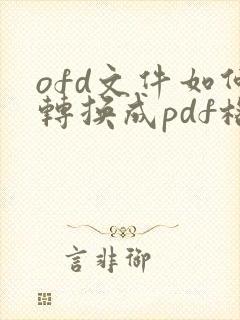 ofd文件如何
轉換成pdf格
言非御